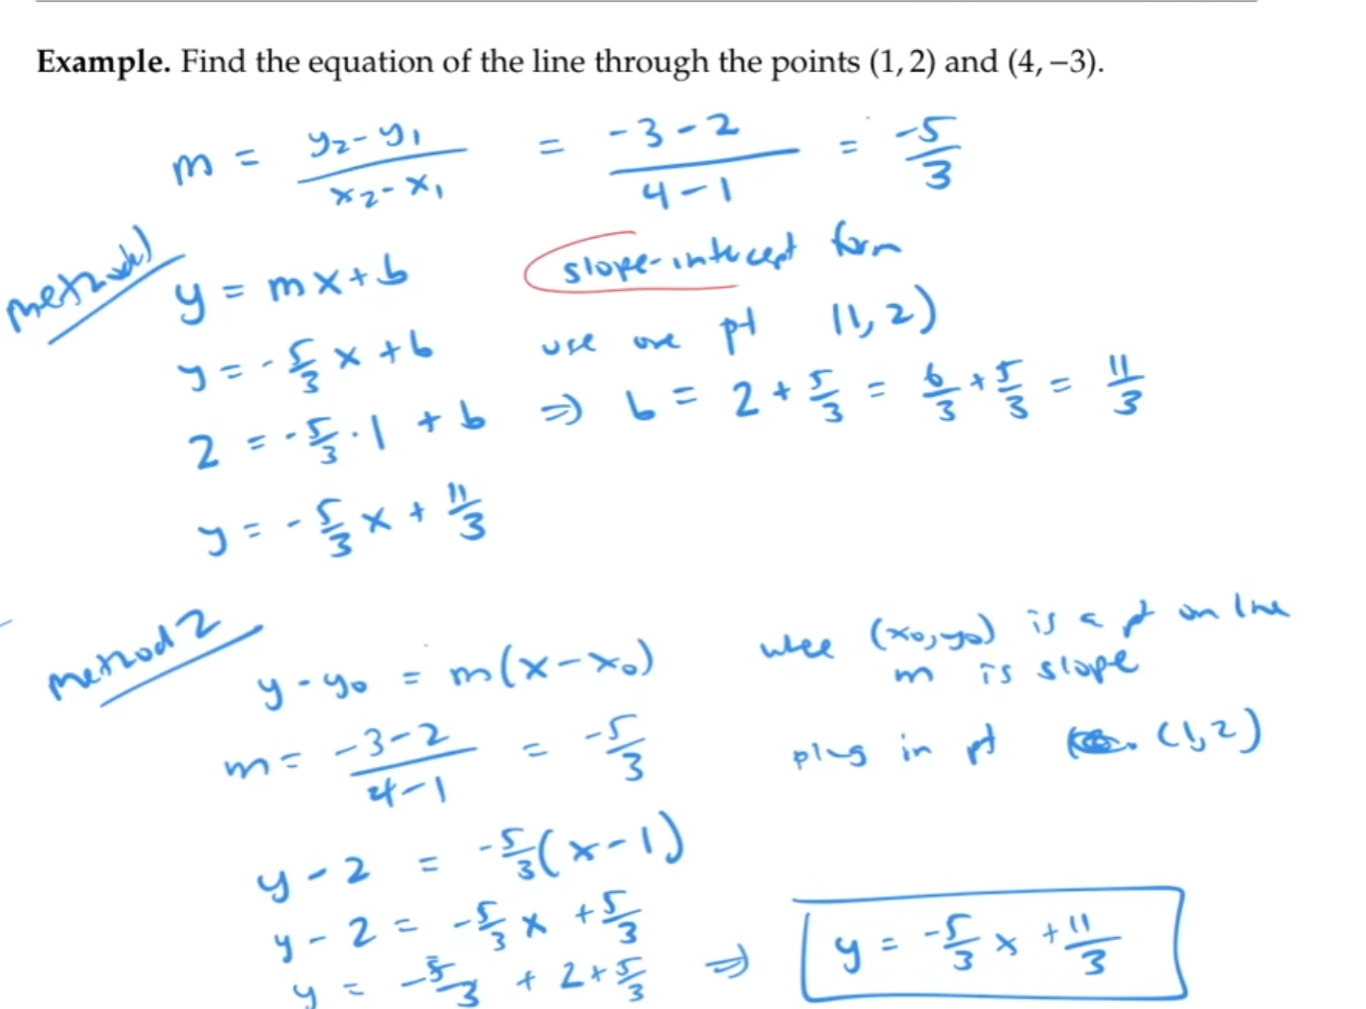 Example. Find the equation of the line through the points (1, 2) and (4, −3).
m = y₂-y₁ / x₂-x₁ = -3-2 / 4-1 = -5/3
method 1
y = mx+b slope-intercept form
y = -5/3 x + b use one pt (1,2)
2 = -5/3 · 1 + b ⇒ b = 2 + 5/3 = 6/3 + 5/3 = 11/3
y = -5/3 x + 11/3
method 2
y - y₀ = m(x-x₀) where (x₀,y₀) is a pt on line
m is slope
m = -3-2 / 4-1 = -5/3 plug in pt (1,2)
y-2 = -5/3(x-1)
y-2 = -5/3 x + 5/3
y = -5/3 + 2+5/3 ⇒ y = -5/3 x + 11/3